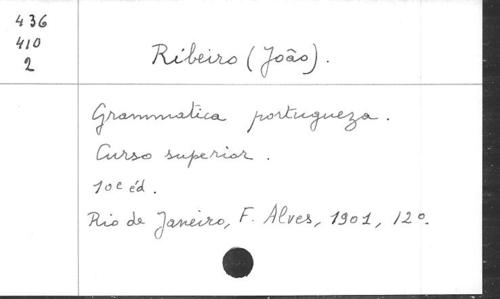 436
410
2
Ribeiro (João).
Grammatica portugueza.
Curso superior.
10e éd.
Rio de Janeiro, F. Alves, 1901, 12º.